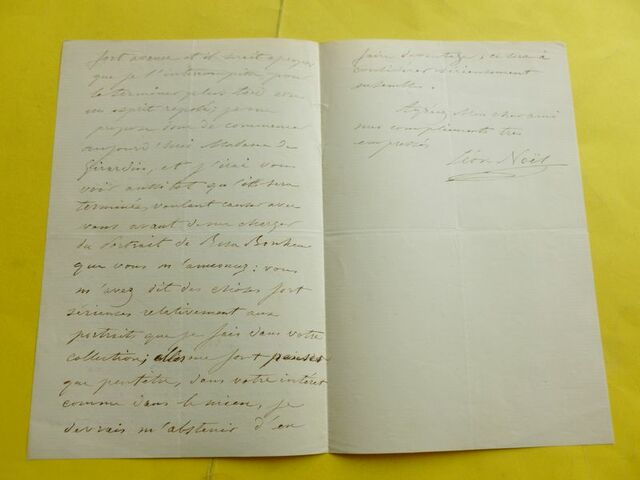 fort avancé et il serait
que je l'interrompite pour
le terminer plus tard avec
un esprit reposé; je me
propose donc de commencer
aujourd'hui Madame de
Girardin, et j'irai vous
voir aussitôt qu'elle sera
terminée, voulant causer avec
vous avant de me charger
du Portrait de Rosa Bonheur
que vous m'annoncez: vous
m'avez dit des choses fort
sérieuses relativement aux
portraits que je fais dans votre
collection; elles me font penser
que peut être, dans votre intérêt
comme dans le mien, je
devrais m'abstenir d'en
faire davantage, ce sera à
considérer sérieusement
ensemble.
Agréez Mon cher ami
mes compliments très
empressés
Léon Noël